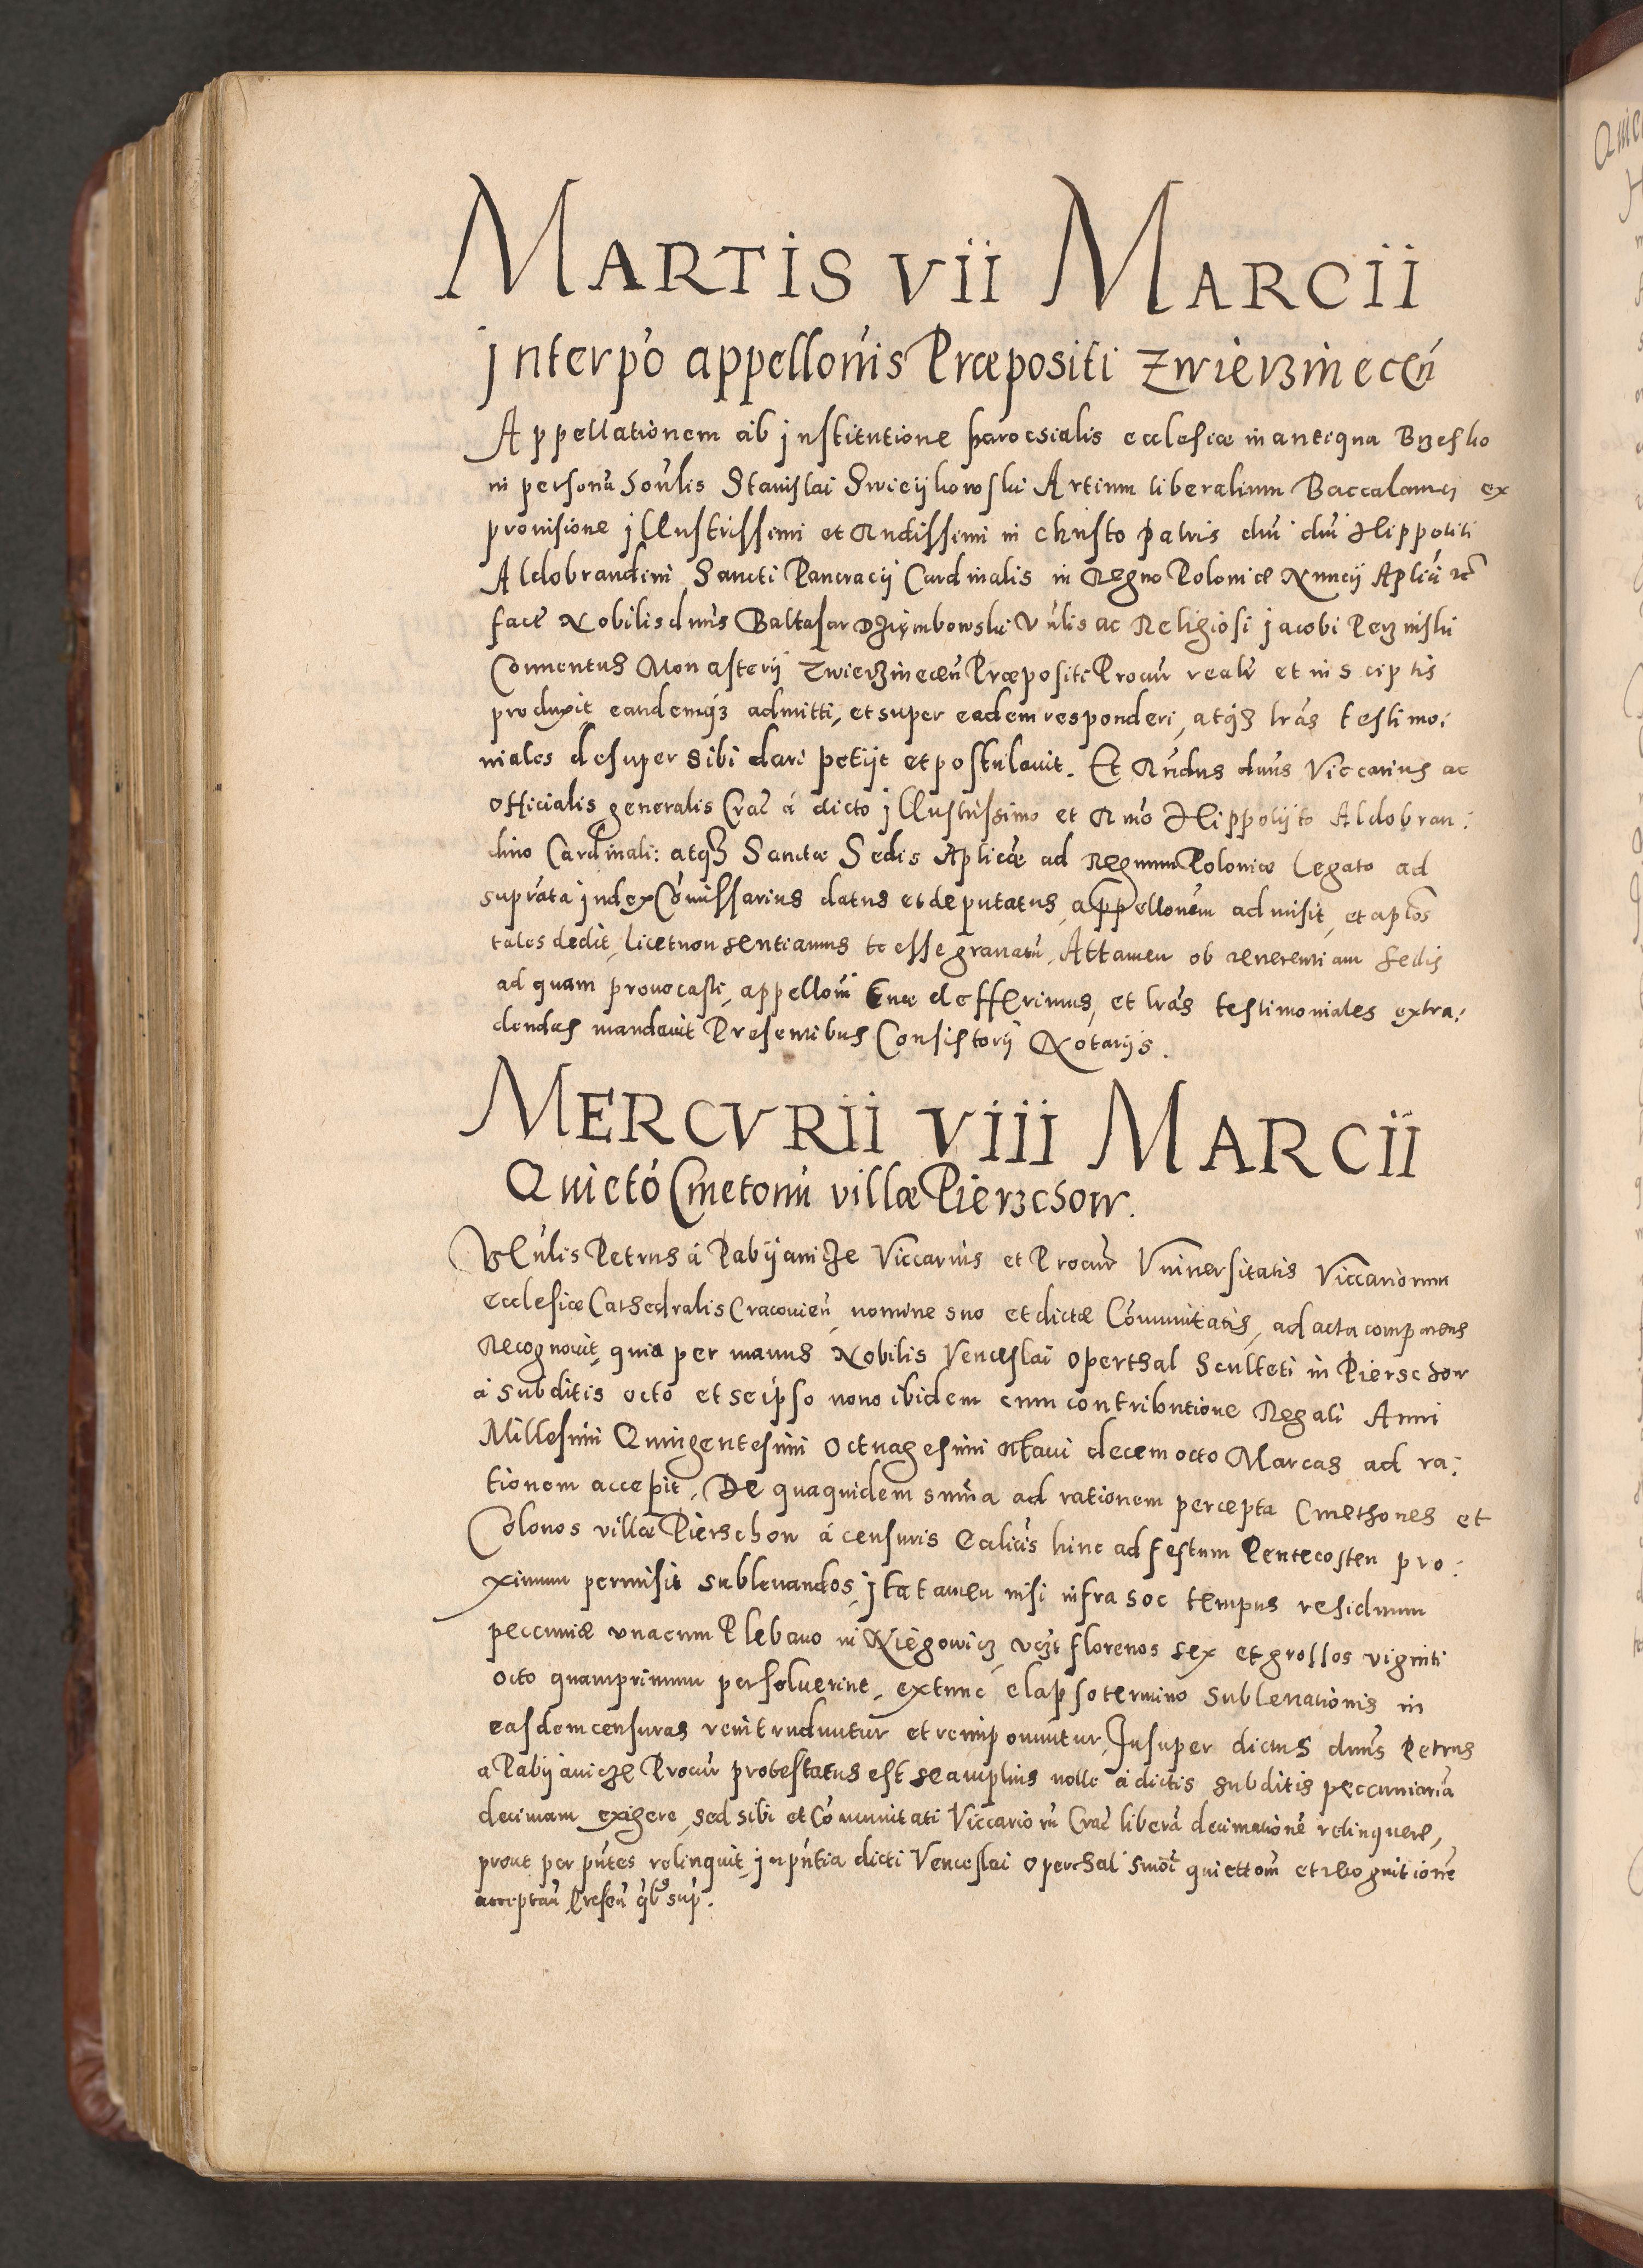 MARTIS VII MARCII
Interpò appellonis Præpositi Zwierzinecen
Appellationem ab institutione parocsialis ecclesiæ in antiqua Brzesko
in personã Honlis Stanislai Swieijkowski Artium liberalium Baccalaurej ex
prouisione Illustrissimi et Rndissimi in Christo patris dnĩ dnĩ Hippoliti
Aldobrandini Sancti Pancracij Cardinalis in Regno Poloniæ Nuncij Aplici etc̃
facte Nobilis dnus Baltasar Dziembowski Vnlis ac Religiosi Jacobi Perznski
Conuentus Monasterij Zwierzinecen Præpositi Procur realr et in sciptis
produxit eandemq3 admitti, et super eadem responderi, atq3 lras testimo:
niales desuper sibi dari petijt et postulauit. Et Rndus dnus Viccarius ac
Officialis generalis Crac̃ á dicto Illustrissimo et Rmo Hippolijto Aldobran:
dino Cardinali: atq3 Sanctæ Sedis Aplicæ ad Regnum Poloniæ Legato ad
suprata Iudex Comissarius datus et deputatus, appellonem admisit, et aplos
tales dedit, licet non sentiamus te esse grauatũ, Attamen ob reuerentiam Sedis
ad quam prouocasti, appelloni tuæ defferimus, et lras testimoniales extra:
dendas mandauit Presentibus Consistorij Notarijs.
MERCVRII VIII MARCII
Quietó Cmetonũ villæ Pierzchow.
Vẽnlis Petrus á Pabijanicze Viccarius et Procur Vniuersitatis Viccariorum
Ecclesiæ Cathedralis Cracouien nomine suo et dictæ Cõmunitatis, ad acta comparens
Recognouit, quia per manus Nobilis Venceslai Operthal Sculteti in Pierschow
á subditis octo et seipso nono ibidem cum contributione Regali Anni
Millesimi Quingentesimi Octuagesimi Octaui decem octo Marcas ad ra:
tionem accepit, De quaquidem summa ad rationem percepta Cmethones et
Colonos villæ Pierschow á censuris Ecaliis hinc ad festum Pentecosten pro:
ximum permisit subleuandos, Ita tamen nisi infra hoc tempus residuum
peccuniæ vnacum Plebano in Niegowicz vczt florenos sex et grossos viginti
octo quamprimum persoluerint, extunc elapso termino subleuationis in
easdem censuras reintruduntur et reimponuntur, Insuper dictus dnus Petrus
a Pabijanicze Procur protestatus est se amplius nolle á dictis subditis peccuniariã
decimam exigere, sed sibi et Cõmunitati Viccariorũ Crac̃ liberã decimationẽ relinquere,
prout per pntes relinquit, In pntia dicti Venceslai Operthal smoi quiettom et recognitionẽ
acceptan Presen qb9 sup.